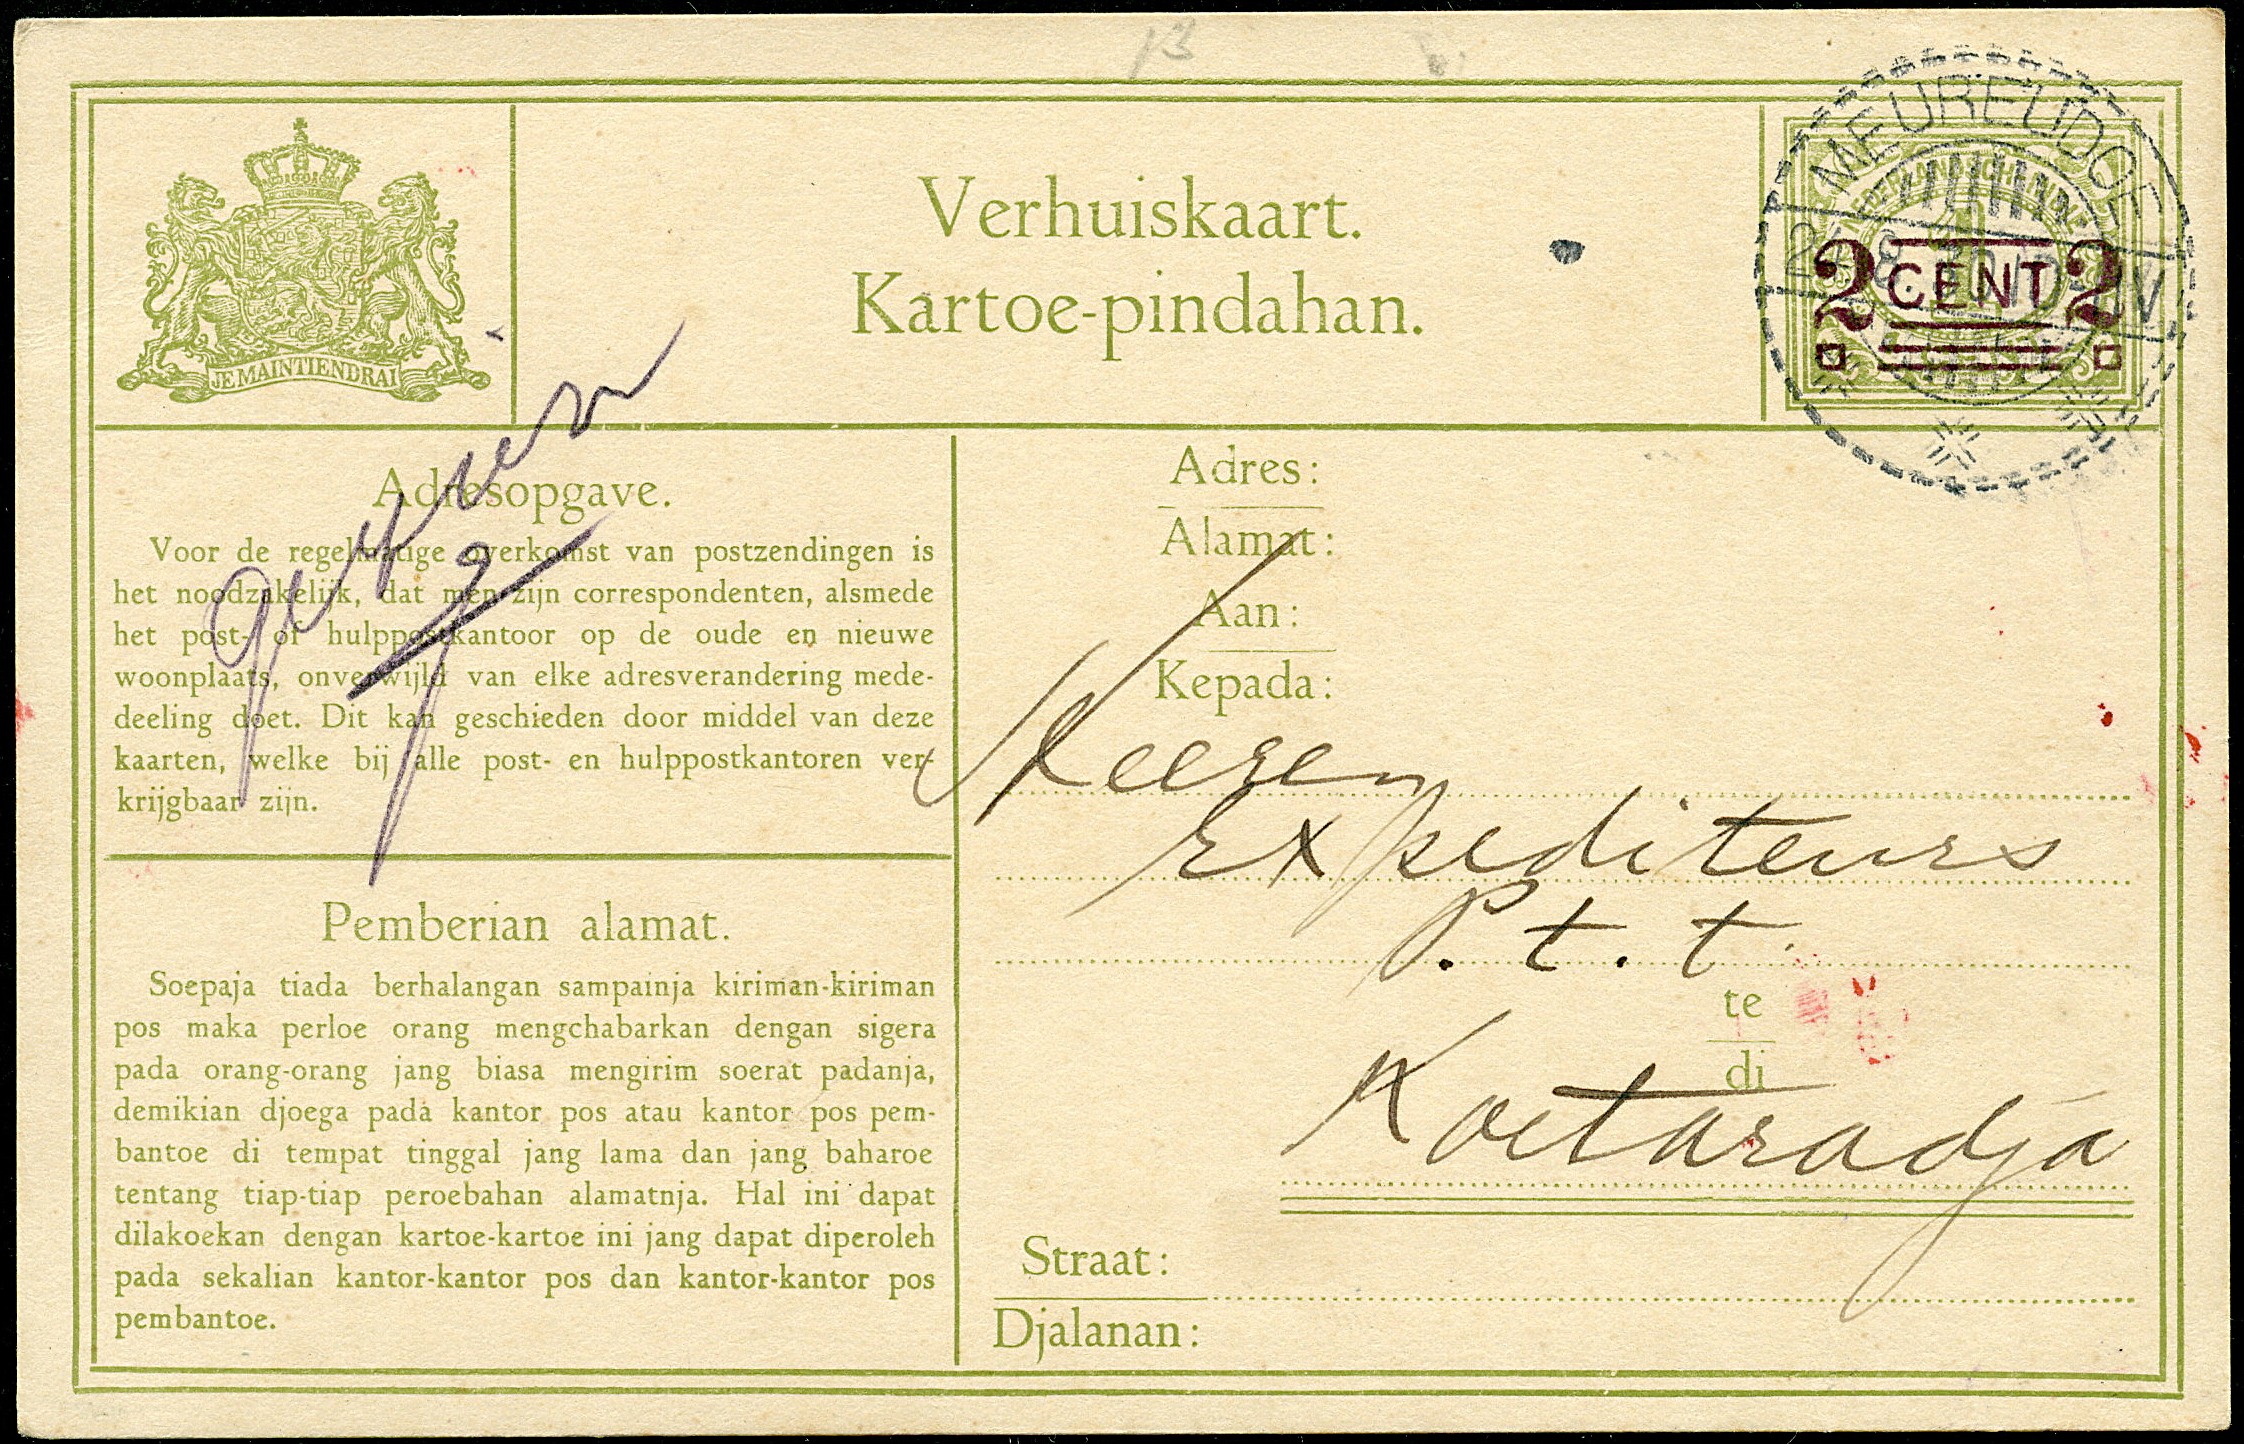 JE MAINTIENDRAI
Verhuiskaart.
Kartoe-pindahan.
MEUREUDOE
2 CENT 2
Adresopgave.
Voor de regelmatige overkomst van postzendingen is
het noodzakelijk, dat men zijn correspondenten, alsmede
het post- of hulppostkantoor op de oude en nieuwe
woonplaats, onverwijld van elke adresverandering mede-
deeling doet. Dit kan geschieden door middel van deze
kaarten, welke bij alle post- en hulppostkantoren ver-
krijgbaar zijn.
Pemberian alamat.
Soepaja tiada berhalangan sampainja kiriman-kiriman
pos maka perloe orang mengchabarkan dengan sigera
pada orang-orang jang biasa mengirim soerat padanja,
demikian djoega pada kantor pos atau kantor pos pem-
bantoe di tempat tinggal jang lama dan jang baharoe
tentang tiap-tiap peroebahan alamatnja. Hal ini dapat
dilakoekan dengan kartoe-kartoe ini jang dapat diperoleh
pada sekalian kantor-kantor pos dan kantor-kantor pos
pembantoe.
Adres:
Alamat:
Aan:
Kepada:
Heeren
Expediteurs
P. t. t.
te
di
Koetaradja
Straat:
Djalanan: